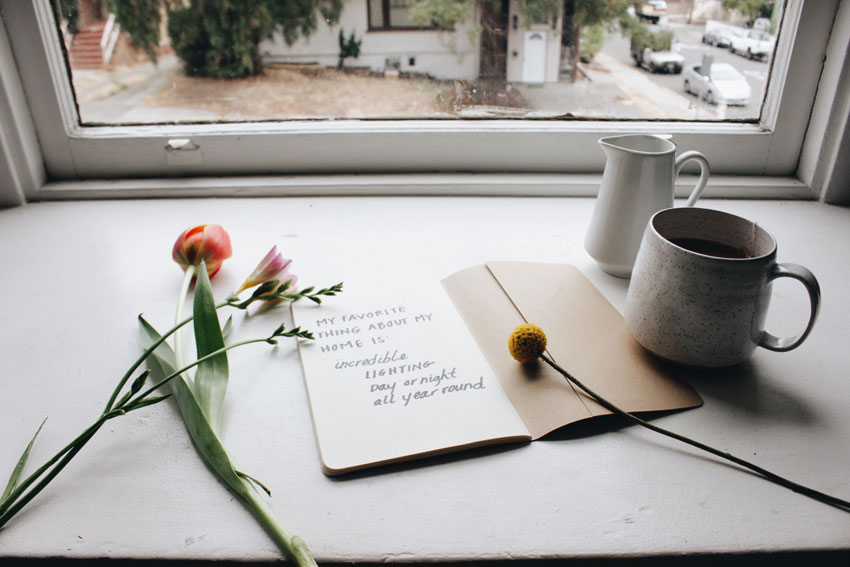 MY FAVORITE
THING ABOUT MY
HOME IS:
incredible
LIGHTING
Day or night
all year round